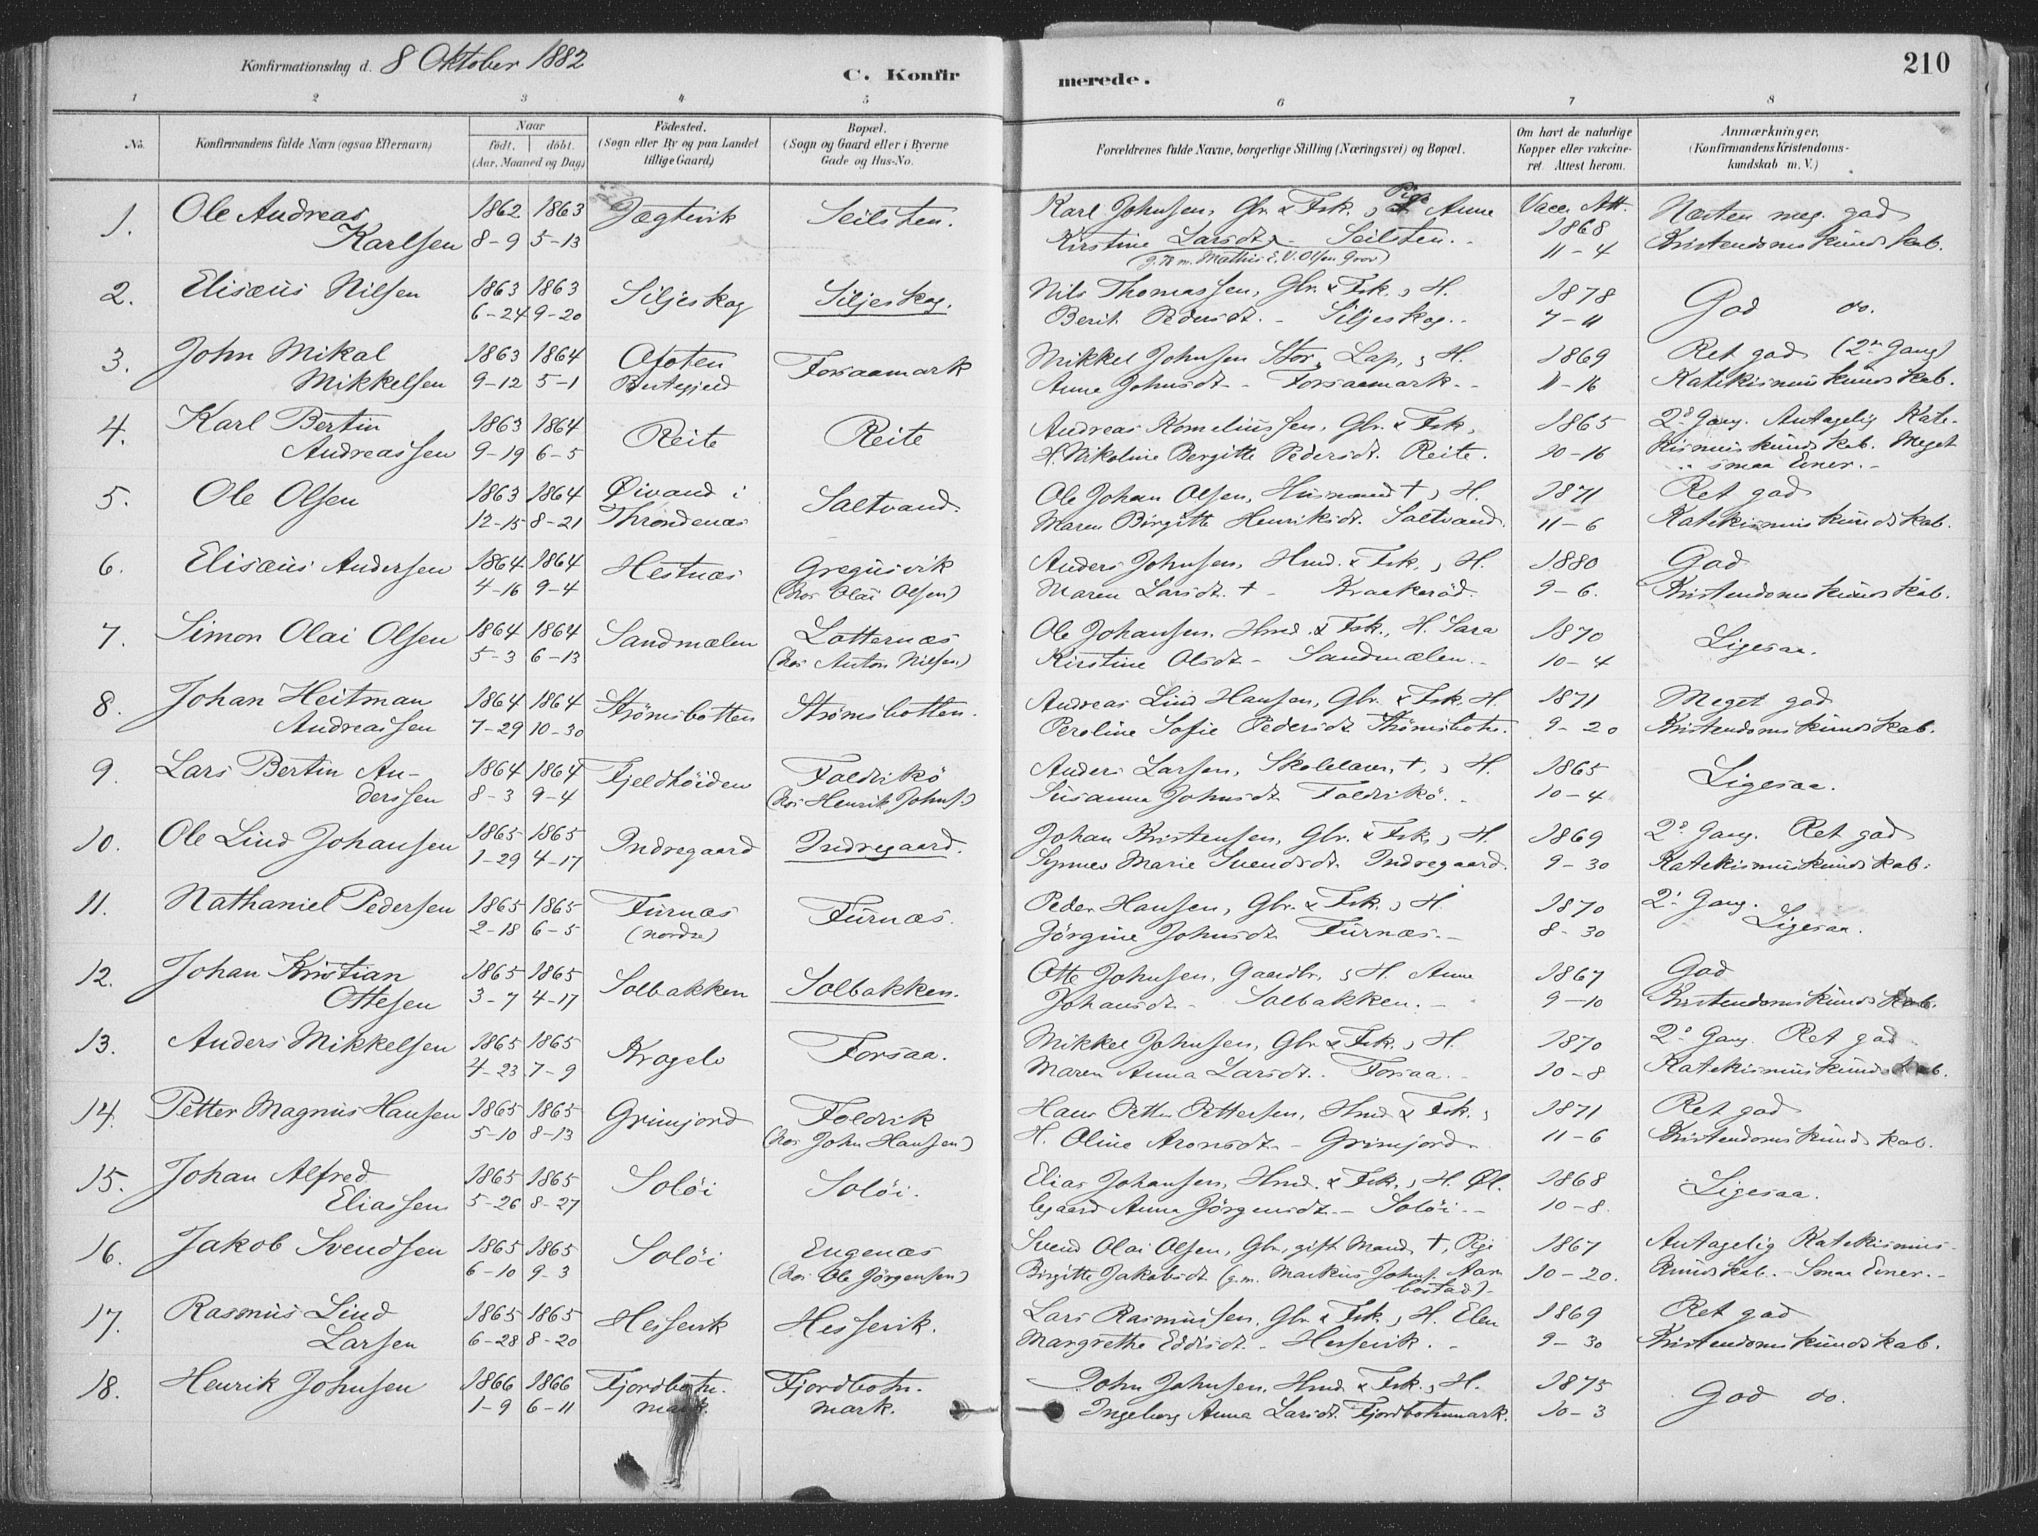 Konfirmationsdag d. 8 Oktober 1882
C. Konfir
merede.
210
1 2 3 4 5 6 7 8
No.
Konfirmandens fulde Navn (ogsaa Efternavn)
Naar
født. døbt.
(Aar, Maaned og Dag)
Fødested.
(Sogn eller By og paa Landet
tillige Gaard)
Bopæl.
(Sogn og Gaard eller i Byerne
Gade og Hus-No.
Forældrenes fulde Navne, borgerlige Stilling (Næringsvei) og Bopæl.
Om havt de naturlige
Kopper eller vakcine-
ret. Attest herom.
Anmærkninger.
(Konfirmandens Kristendoms-
kundskab m. V.)
1. Ole Andreas 1862 1863 Jægtvik Seilsten. Karl Johnsen, Gbr. & Fsk., Pige Anne Vacc. Att. 1868 Næsten meg. god
Karlsen 8-9 5-13 Kirstine Larsdt. - Seilsten. - 11-4 Kristendomskundskab.
(g. 78 m. Mathis E. V. Olsen Grov)
2. Elisæus Nilsen 1863 1863 Siljeskog Siljeskog. Nils Thomassen, Gbr. & Fsk., H. 1878 God do.
6-24 9-20 Berit Pedersdt. - Siljeskog. - 7-11
3. John Mikal 1863 1864 Ofoten Forsaamark Mikkel Johnsen Stor, Lap, H. 1869 Ret god (2n Gang)
Mikkelsen 9-12 5-1 Anne Johnsdt. - Forsaamark. - 11-16 Katekismuskundskab.
4. Karl Bertin 1863 1864 Reite Reite Andreas Korneliussen, Gbr. & Fsk, 1865 2d Gang. Antagelig Kate-
Andreassen 9-19 6-5 H. Nikoline Bergitte Pedersdt. Reite. 10-16 kismuskundskab. Meget
smaa Evner. -
5. Ole Olsen 1863 1864 Øivand i Saltvand. Ole Johan Olsen, Husmand †, H. 1871 Ret god
12-15 8-21 Throndenæs Maren Birgitte Henriksdt. Saltvand. 11-6 Katekismuskundskab.
6. Elisæus Andersen 1864 1864 Hestnæs Gregusvik Anders Johnsen, Hmd. & Fsk., H. 1880 God
4-16 9-4 (hos Olai Olsen) Maren Larsdt. † - Kraakerød. 9-6. Kristendomskundskab.
7. Simon Olai Olsen 1864 1864 Sandmælen Lotternæs Ole Johansen, Hmd. & Fsk., H. Sara 1870 Ligesaa.
5-3 6-13 (hos Anton Nilsen) Kirstine Olsdt - Sandmælen. - 10-4
8. Johan Heitman 1864 1864 Strømsbotten Strømsbotten. Andreas Lind Hansen, Gbr. & Fsk. H. 1871 Meget god
Andreassen 7-29 10-30 Peroline Sofie Pedersdt. Strømsbotn. 9-20 Kristendomskundskab.
9. Lars Bertin An- 1864 1864 Fjeldhøiden Foldvikø Anders Larsen, Skolelærer, †, H. 1865 Ligesaa.
derssen 8-3 9-4 (hos Henrik Johns.) Susanna Johnsdt Foldvikø. 10-4
10. Ole Lind Johansen 1865 1865 Indregaard Indregaard. Johan Kristensen, Gbr. & Fsk, H. 1869 2d Gang. Ret god
1-29 4-17 Synnev Marie Svendsdt. Indregaard. 9-30 Katekismuskundskab.
11. Nathaniel Pedersen 1865 1865 Furnæs Furnæs. Peder Hansen, Gbr. & Fsk., H. 1870 2d Gang. Ligesaa.
2-18 6-5 (nordre) Jørgine Johnsdt. Furnæs. - 8-30
12. Johan Kristian 1865 1865 Solbakken Solbakken. Otte Johnsen, Gaardbr., H. Anne 1867 God
Ottesen 3-7 4-17 Johansdt - Solbakken. - 9-10 Kristendomskundskab.
13. Anders Mikkelsen 1865 1865 Krogelv Forsaa. Mikkel Johnsen, Gbr. & Fsk., H. 1870 2d Gang. Ret god
4-23 7-9 Maren Anna Larsdt. Forsaa. - 10-8 Katekismuskundskab.
14. Petter Magnus Hansen 1865 1865 Grimjord Foldvik Hans Petter Pettersen, Hmd & Fsk., 1871 Ret god
5-10 8-13 (hos John Hansen) H. Oline Aronsdt - Grimjord. 11-6 Kristendomskundskab.
15. Johan Alfred 1865 1865 Soløi Soløi. Elias Johansen, Hmd. & Fsk., H. Øl- 1868 Ligesaa.
Eliassen 5-26 8-27 legaard Anna Jørgensdt. - Soløi. - 10-8.
16. Jakob Svendsen 1865 1865 Soløi Eugenæs Svend Olai Olsen, Gbr, gift Mand †, Pige 1867 Antagelig Katekismus-
6-10 9-3 (hos Ole Jørgensen) Birgitte Jakobsdt (g.m. Markus Johns. Aar- 10-20. kundskab. - Smaa Evner. -
bostad) -
17. Rasmus Lind 1865 1865 Hessevik Hessevik. Lars Rasmussen, Gbr & Fsk., H. Elen 1869 Ret god
Larsen 6-28 8-20 Margrethe Eddisdt. - Hessevik. - 9-30 Kristendomskundskab.
18. Henrik Johnsen 1866 1866 Fjordbotn- Fjordbotn- John Johnsen, Hmd & Fsk., H. 1875 God do.
1-9 6-11 mark. mark. Ingeborg Anna Larsdt. Fjordbotnmark. 10-3